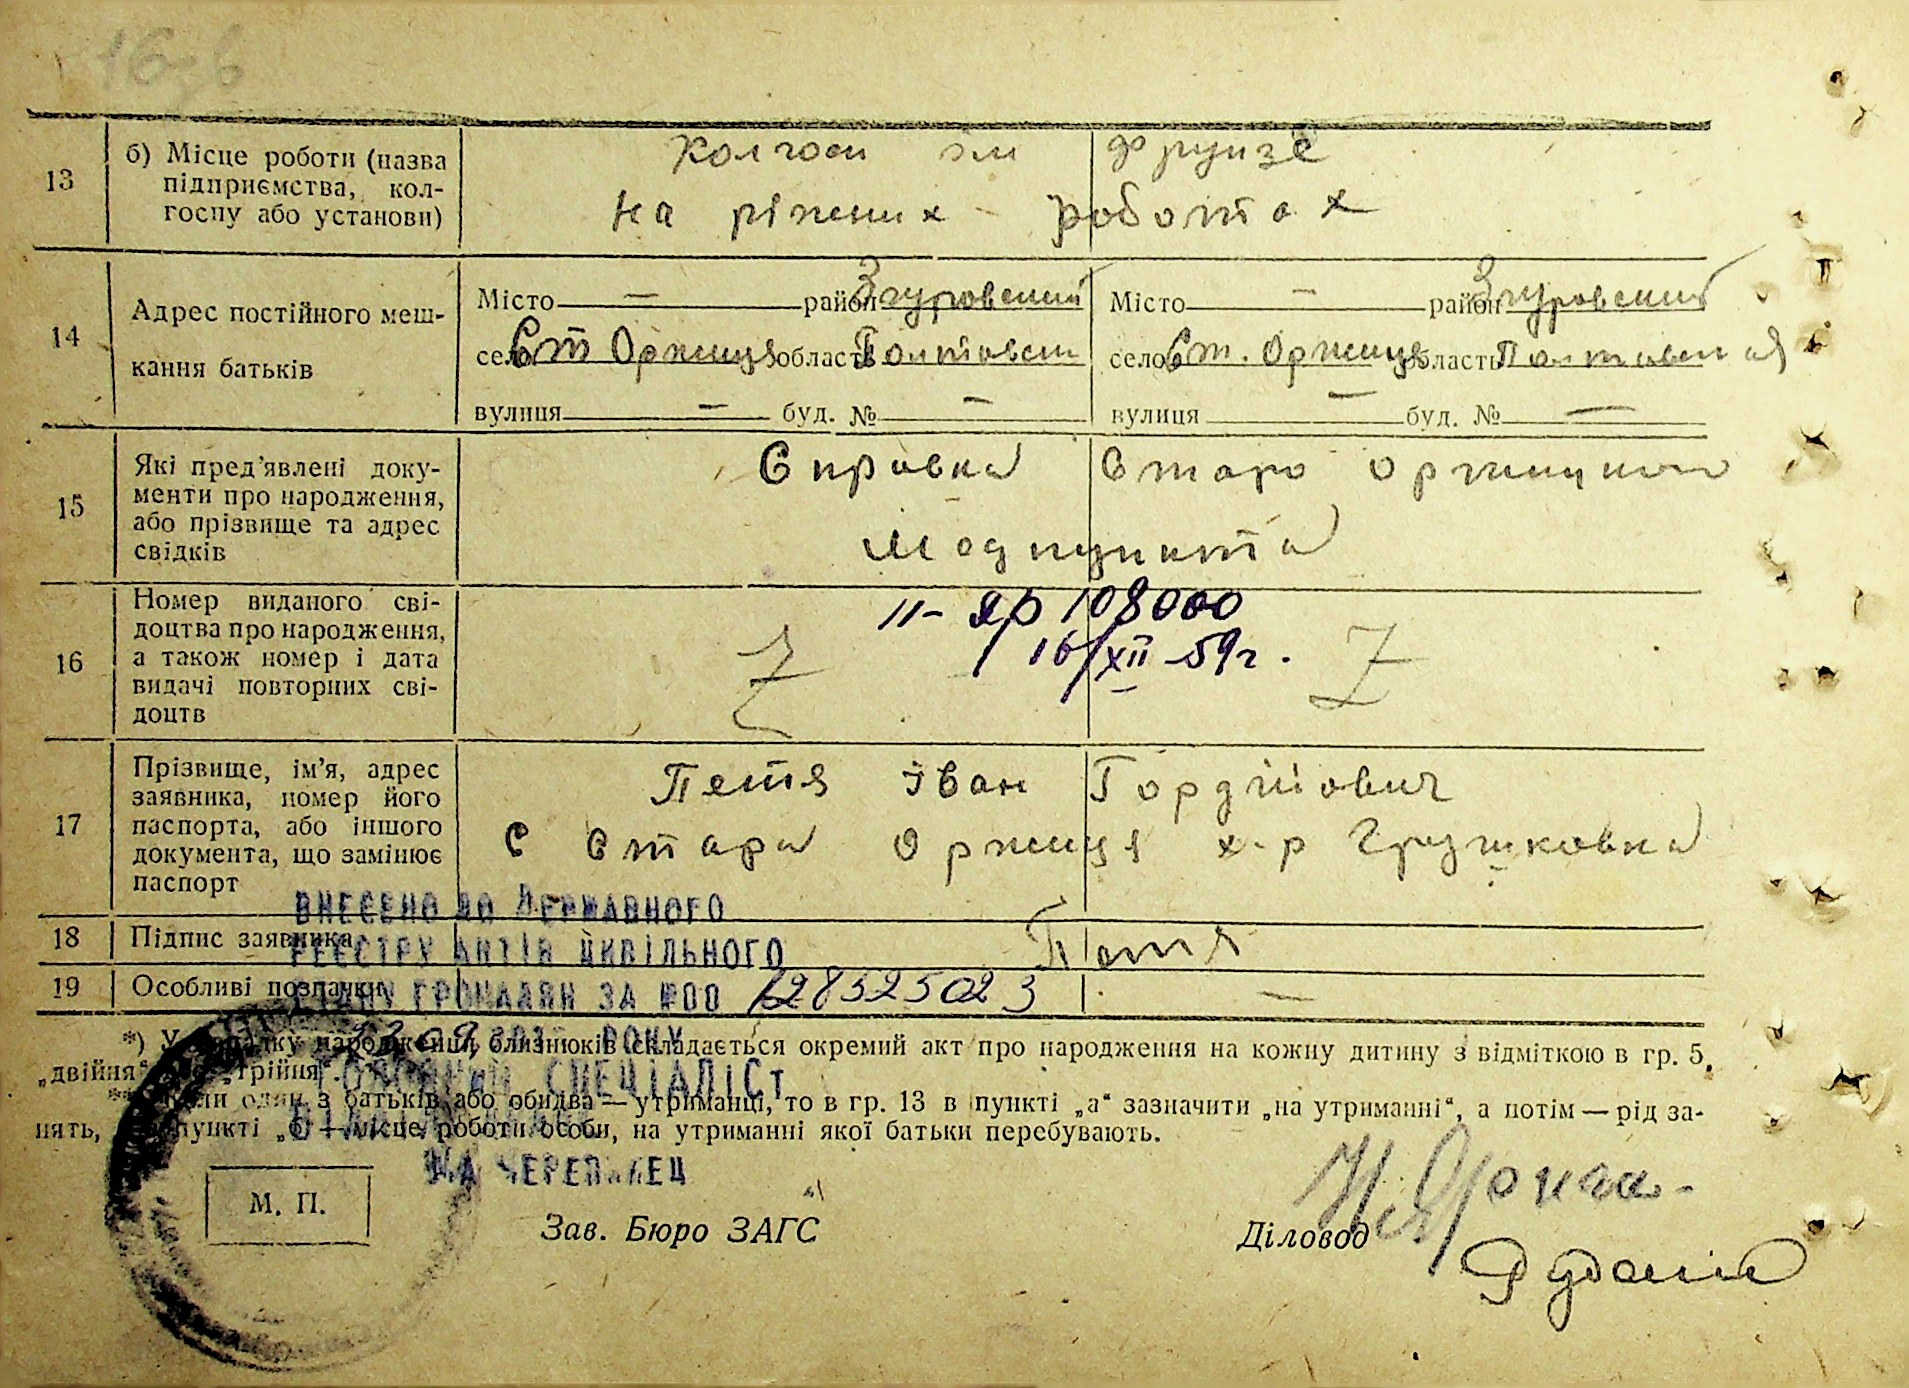 16-б
13 б) Місце роботи (назва підприємства, кол-госпу або установи)
Колгосп ім Фрунзе
На ріжних роботах
14 Адрес постійного меш-
кання батьків
Місто — район Згуровский Місто — район Згуровский
село Ст Оржиця область Полтавск село Ст. Оржиця область Полтавская
вулиця — буд. № — вулиця — буд. № —
15 Які пред'явлені доку-
менти про народження,
або прізвище та адрес
свідків
Справка Старо Оржицкого
Медпункта
16 Номер виданого сві-
доцтва про народження,
а також номер і дата
видачі повторних сві-
доцтв
II-ЯР 108000
16/XII-59г.
Z Z
17 Прізвище, ім'я, адрес
заявника, номер його
паспорта, або іншого
документа, що замінює
паспорт
Петя Іван Гордійович
с Стара Оржиця х-р Грушковка
ВНЕСЕНО ДО ДЕРЖАВНОГО
18 Підпис заявника Петя
РЕЄСТРУ АКТІВ ЦИВІЛЬНОГО
19 Особливі позначки —
СТАНУ ГРОМАДЯН ЗА №00 128525023
РОКУ
*) У випадку народження близнюків складається окремий акт про народження на кожну дитину з відміткою в гр. 5.
„двійня“ або „трійня“.
СПЕЦІАЛІСТ
**) Коли один з батьків або обидва — утриманці, то в гр. 13 в пункті „а“ зазначити „на утриманні“, а потім — рід за-
нять, в пункті „б“ — місце роботи особи, на утриманні якої батьки перебувають.
ЧЕРЕПИНЕЦ
М. П.
Зав. Бюро ЗАГС
Діловод